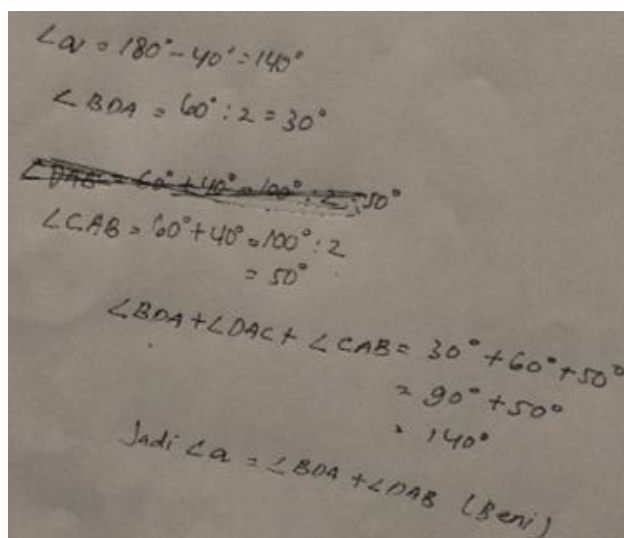 ∠a = 180° - 40° = 140°
∠BDA = 60° : 2 = 30°
∠DAB = 60° + 40° = 100° : 2 = 50°
∠CAB = 60° + 40° = 100° : 2
= 50°
∠BDA + ∠DAC + ∠CAB = 30° + 60° + 50°
= 90° + 50°
= 140°
Jadi ∠a = ∠BDA + ∠DAB (Beni)